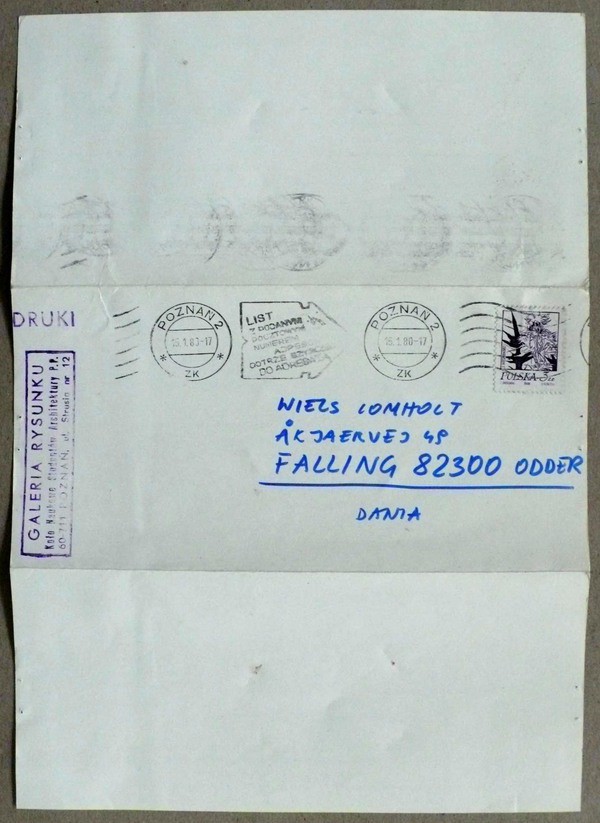 DRUKI
GALERIA RYSUNKU
Koło Naukowe Studentów Architektury P.P.
60-711 POZNAŃ, ul. Strusia nr 12
POZNAŃ 2
15.1.80-17
ZK
LIST
Z PODANYM
POCZTOWYM
NUMEREM
ADRES
DOTRZE SZYBCIEJ
DO ADRESATA
POZNAŃ 2
15.1.80-17
ZK
POLSKA 3 ZŁ
NIELS LOMHOLT
ÅKJAERVEJ 49
FALLING 82300 ODDER
DANIA